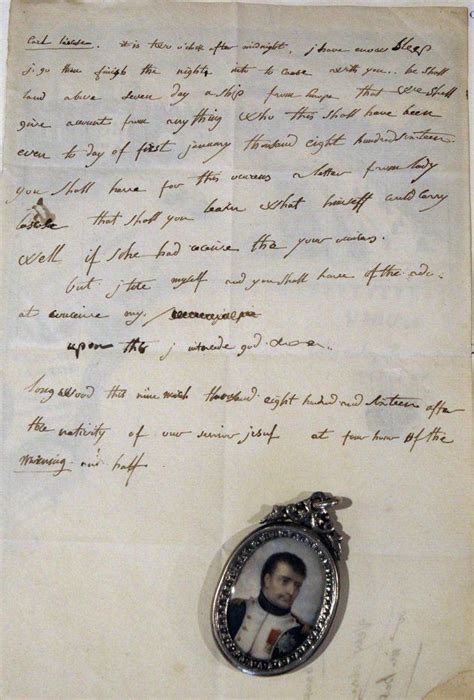 Count lascases. it is two o'clock after midnight, j have enow sleep
j go then finish the night into to cause with you... he shall
land above seven day a ship from Europe that we shall
give account from anything who this shall have been
even to day of first january thousand eight hundred sixteen.
you shall have for this ocurens a letter from lady
lascases that shall you learn what himself could carry
well if she had conceive the your occurens.
but j tire myself and you shall have of the ado
at conceive my
upon this j intercede god
longwood this nine march thousand eight hundred and sixteen after
the nativity of our savior jesus at four hour of the
morning and half